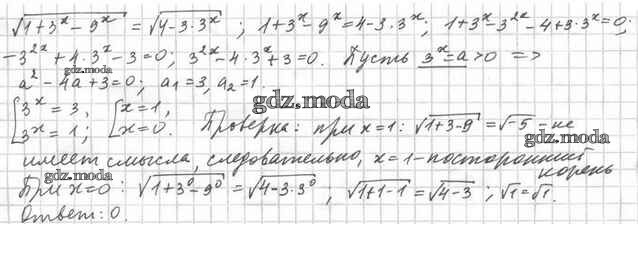 √(1+3^x − 9^x) = √(4−3·3^x) ; 1+3^x−9^x=4−3·3^x; 1+3^x−3^{2x}−4+3·3^x=0;
−3^{2x}+4·3^x−3=0; 3^{2x}−4·3^x+3=0. Пусть 3^x=a>0 =>
gdz.moda
a²−4a+3=0; a₁=3, a₂=1.
[3^x=3, [x=1,
gdz.moda
[3^x=1; [x=0. Проверка: при x=1: √(1+3−9)=√−5 − не
gdz.moda
имеет смысла, следовательно, x=1−посторонний
корень
gdz.moda
При x=0: √(1+3⁰−9⁰) = √(4−3·3⁰) ; √(1+1−1)=√(4−3) ; √1=√1.
gdz.moda
Ответ: 0.
gdz.moda